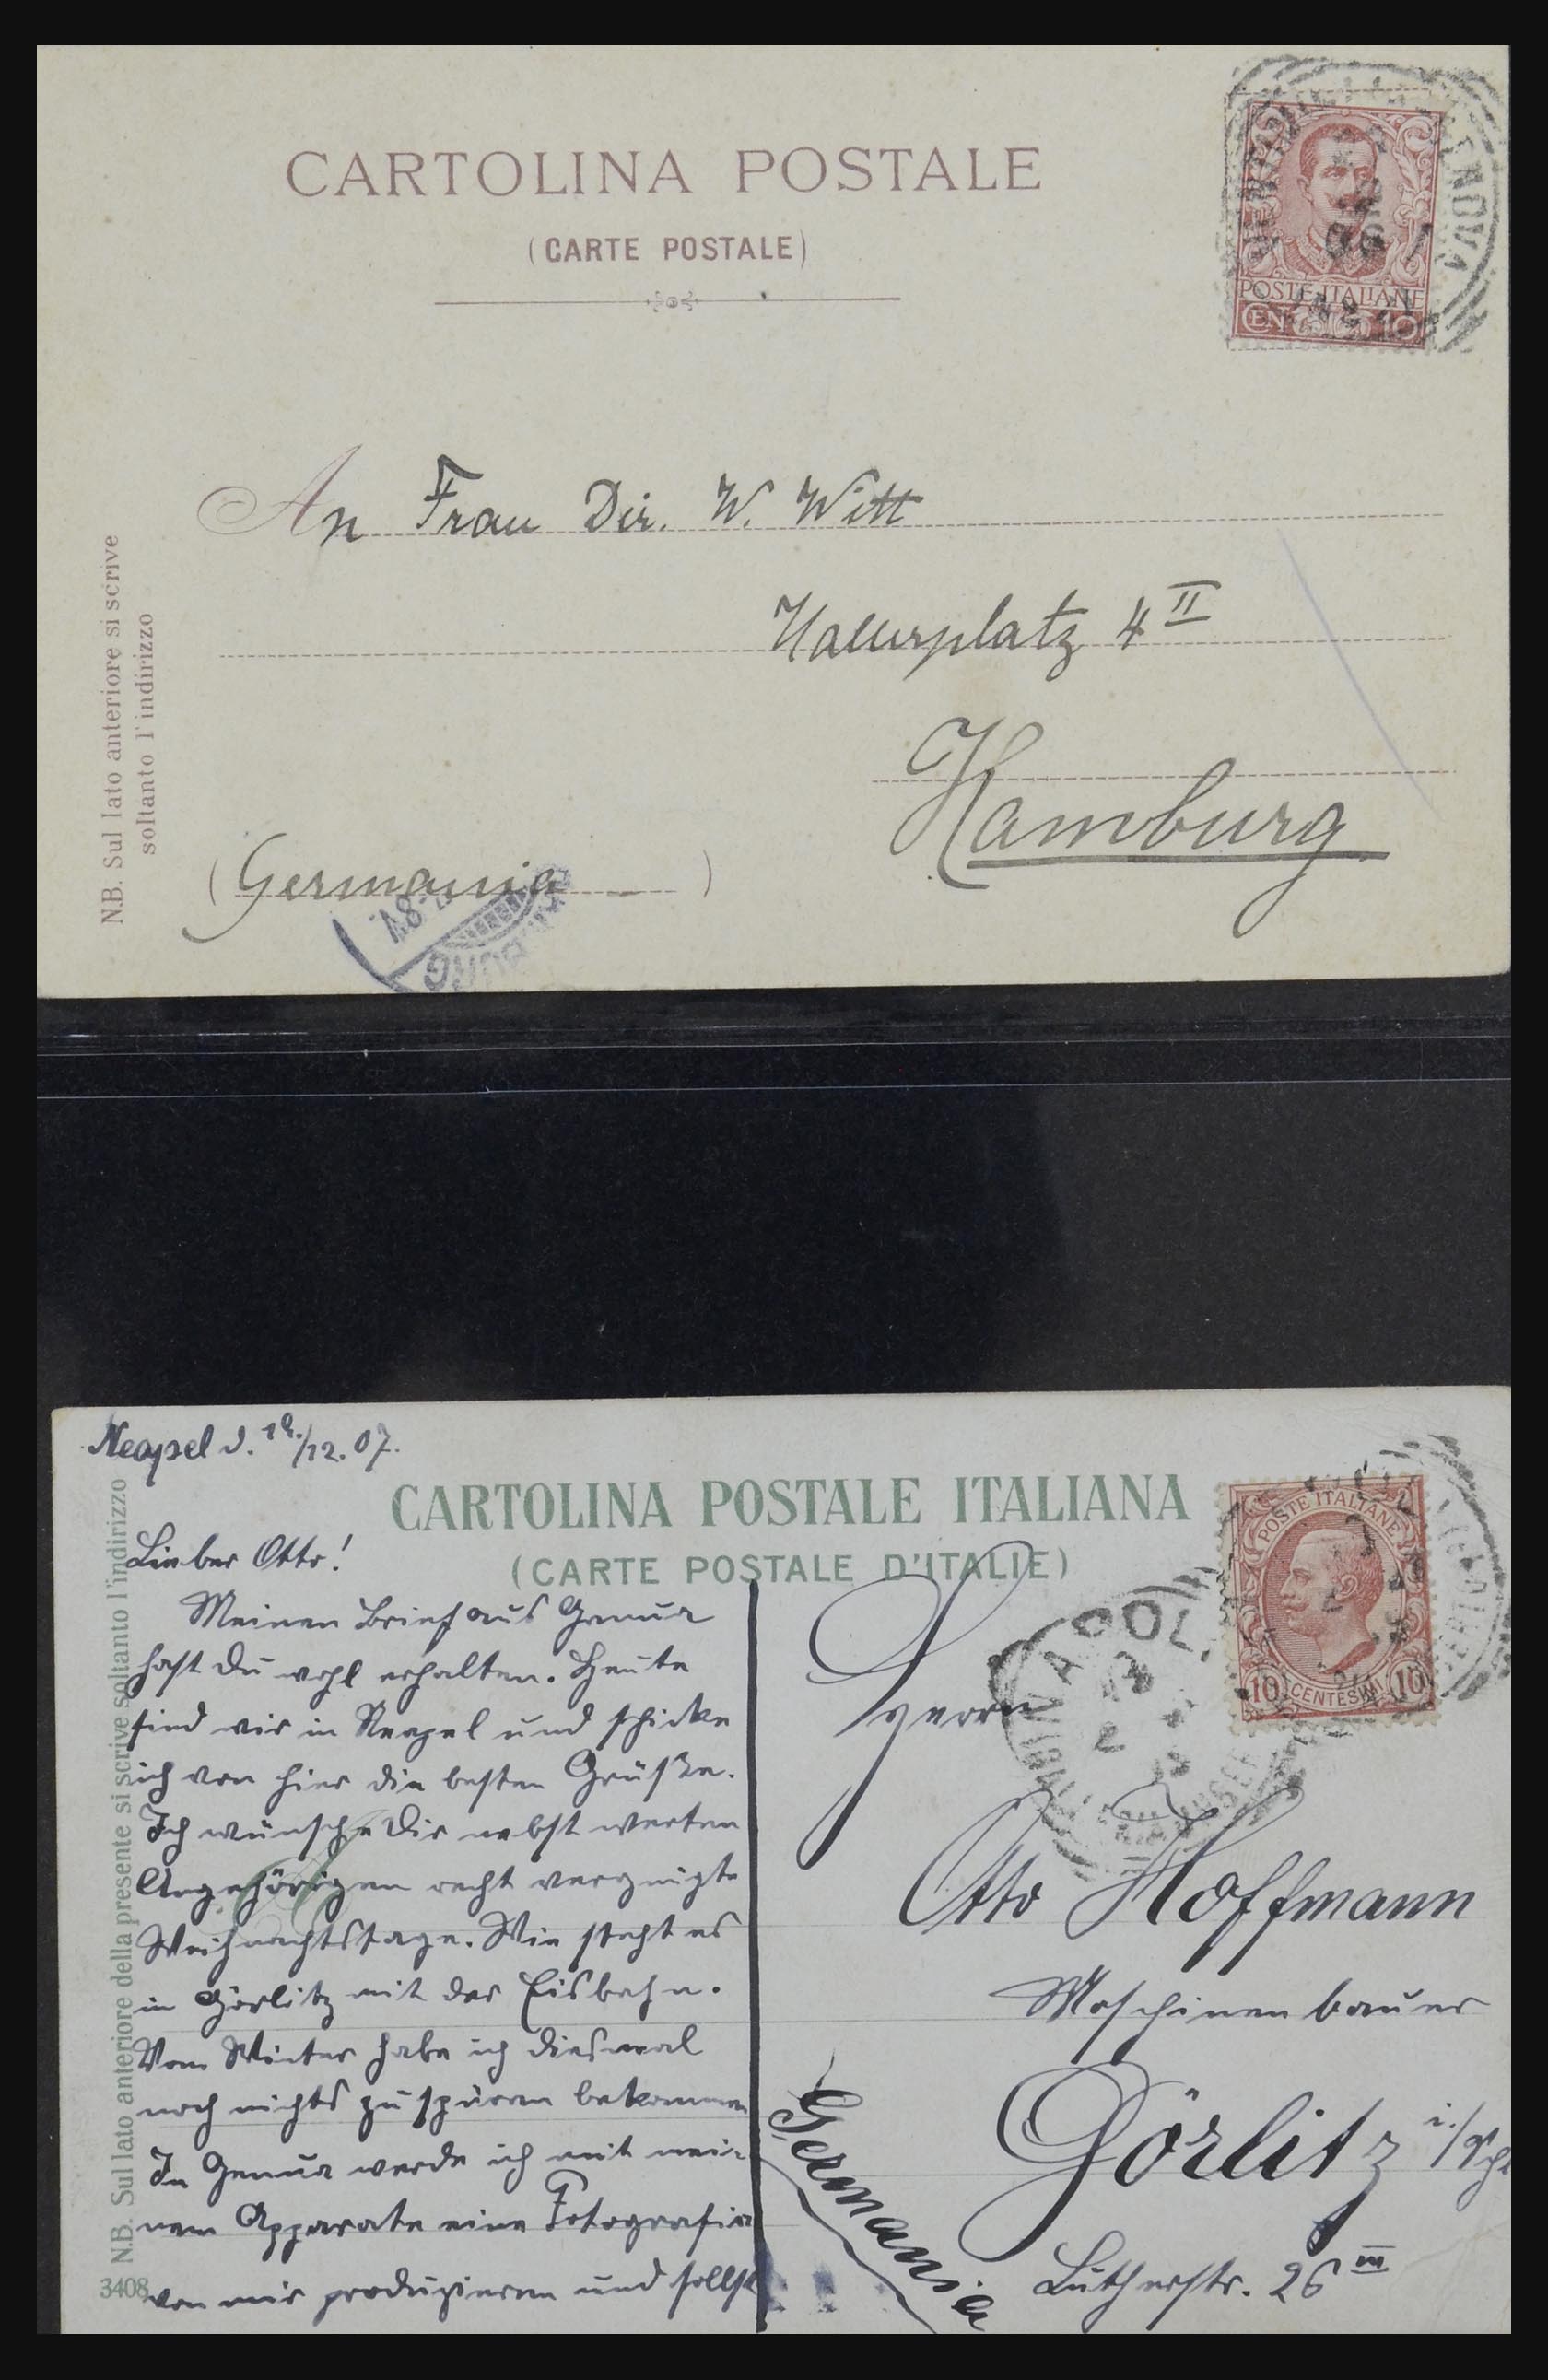 CARTOLINA POSTALE
(CARTE POSTALE)
POSTE ITALIANE
CENT. 10
GENOVA
An Frau Dir. W. Witt
Hallerplatz 4 II
Hamburg
(Germania)
HAMBURG
N.B. Sul lato anteriore si scrive
soltanto l'indirizzo
Neapel d. 19./12.07.
CARTOLINA POSTALE ITALIANA
(CARTE POSTALE D'ITALIE)
N.B. Sul lato anteriore della presente si scrive soltanto l'indirizzo
3408
Lieber Otto!
Meinen Brief aus Genua
hast Du wohl erhalten. Heute
sind wir in Neapel und schicke
ich von hier die besten Grüße.
Ich wünsche Dir nebst werten
Angehörigen recht vergnügte
Weihnachtstage. Wie steht es
in Görlitz mit der Eisbahn.
Vom Winter habe ich diesmal
noch nichts zu spüren bekommen
In Genua werde ich mit mei-
nem Apparate eine Fotografie
von mir produzieren und sollst
POSTE ITALIANE
10 CENTESIMI 10
NAPOLI
Herrn
Otto Hoffmann
Maschinenbauer
Görlitz i./Schl
Lutherstr. 26 III
Germania